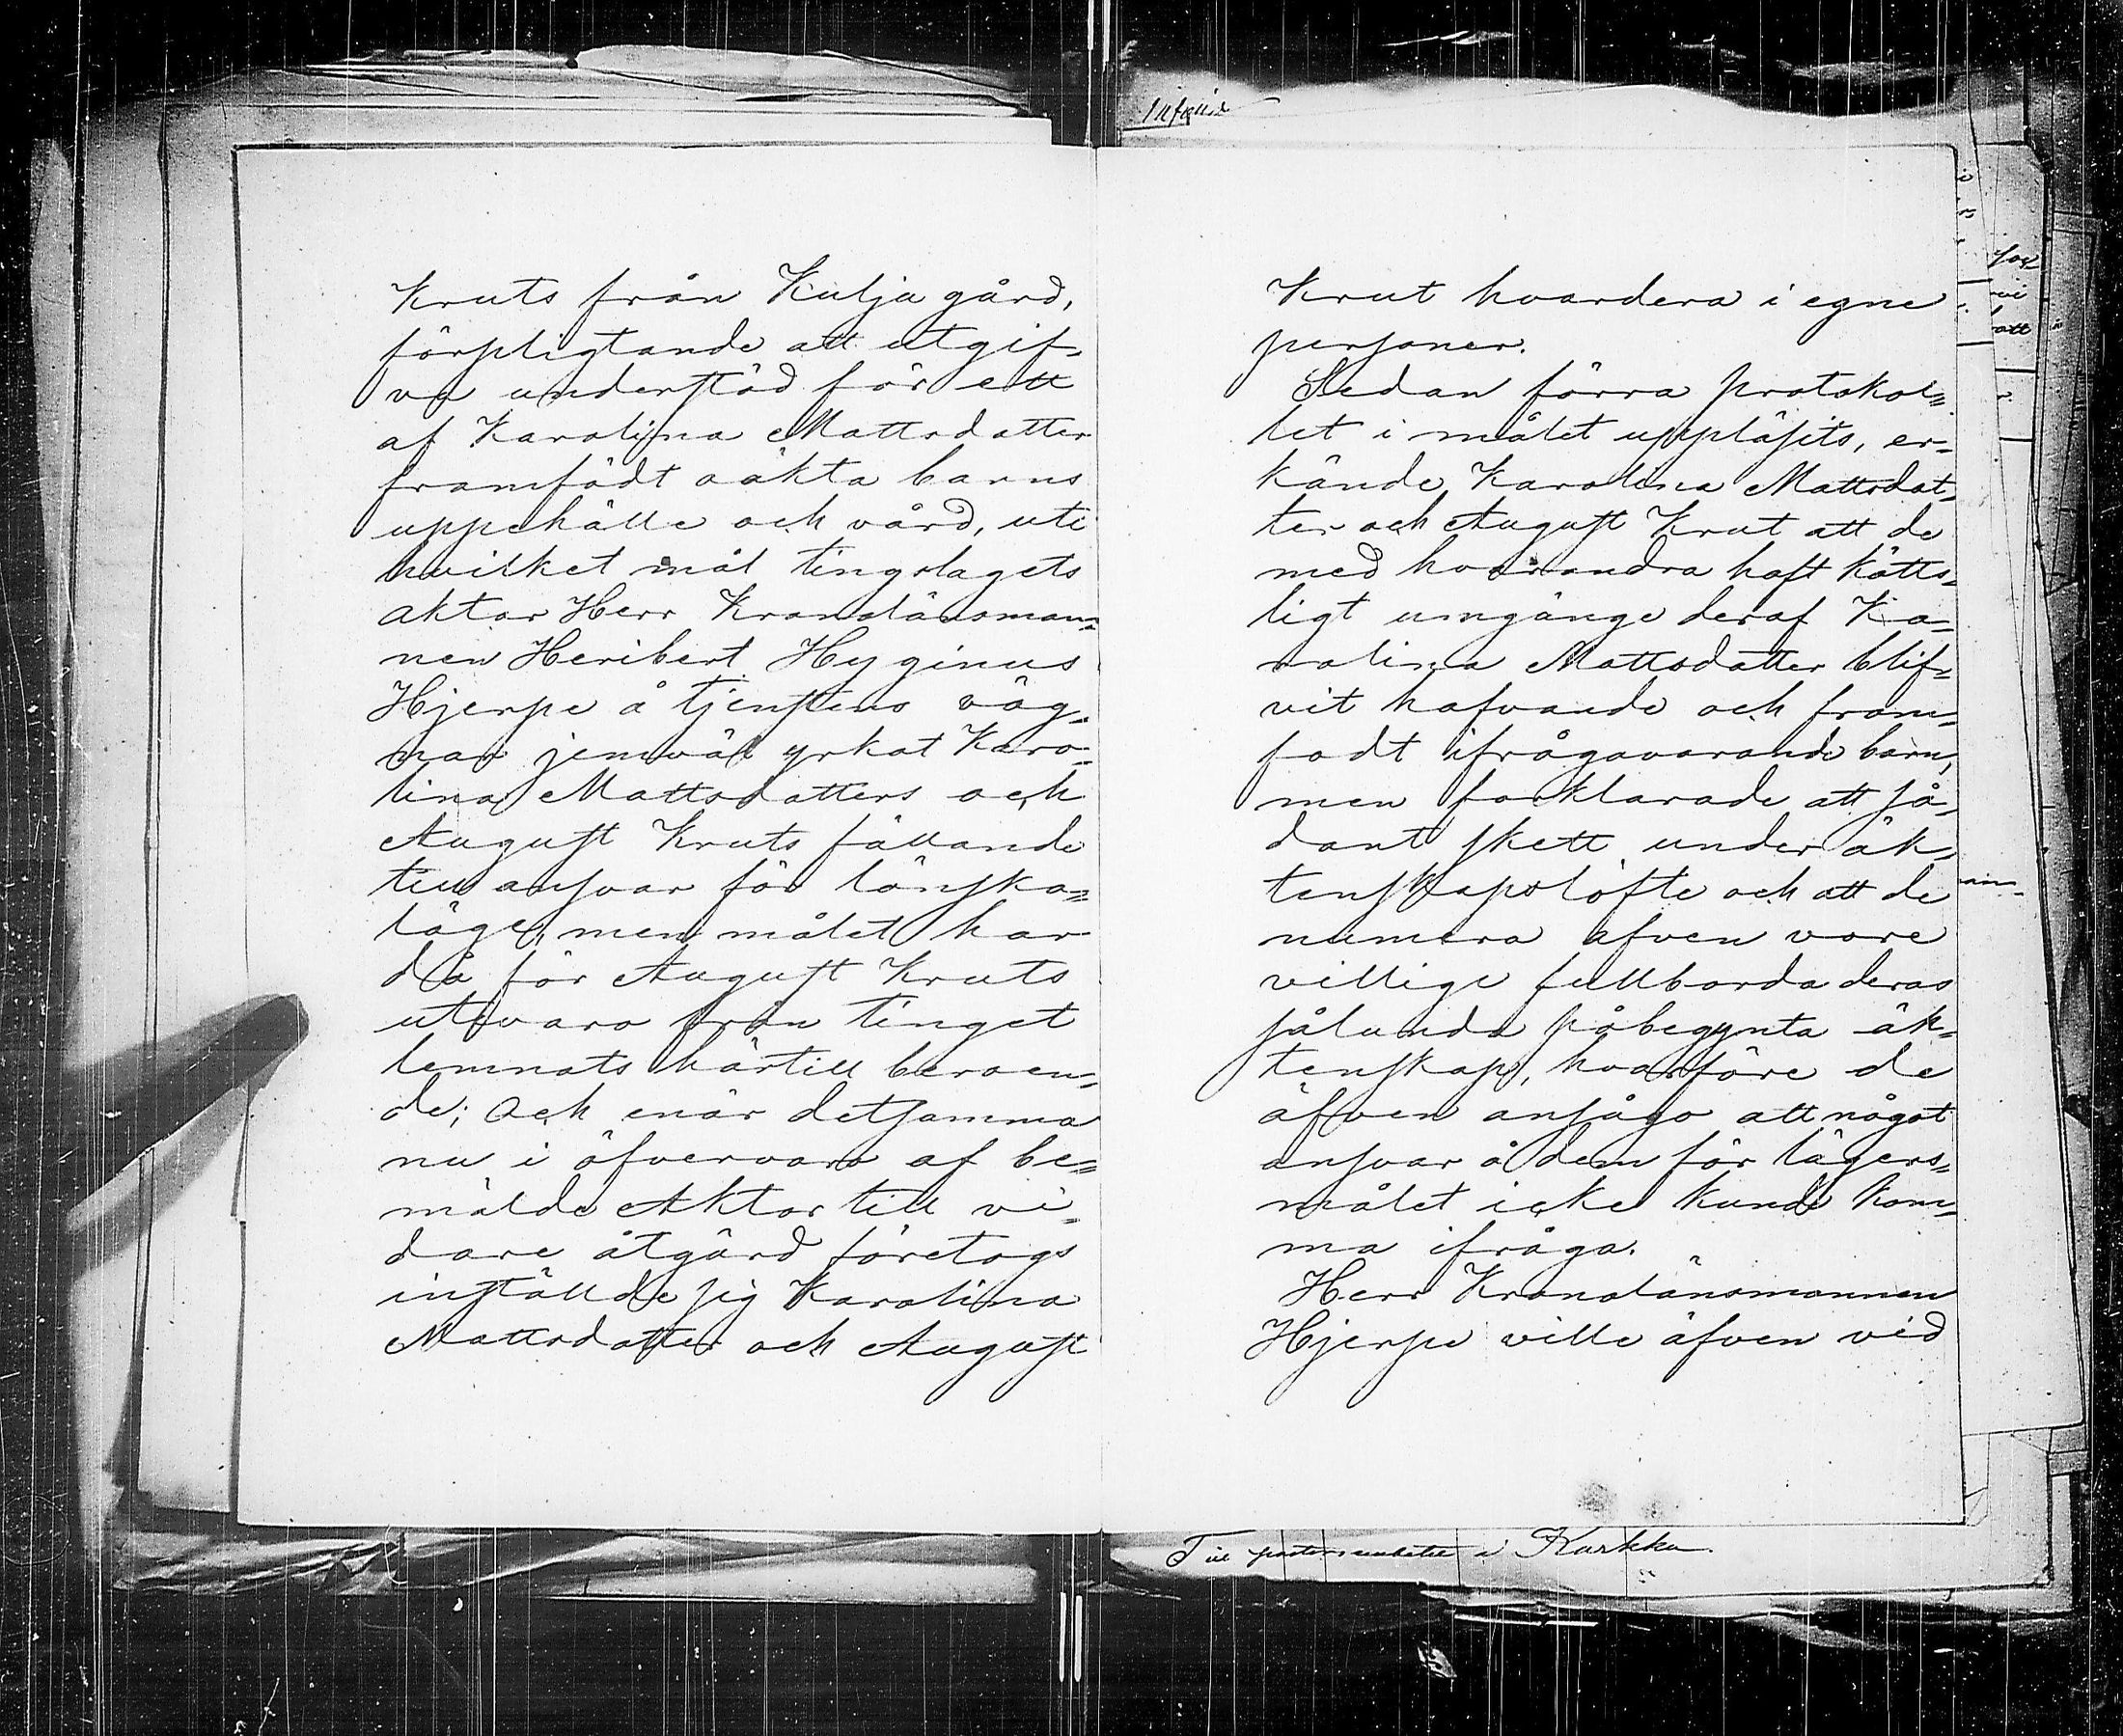 Kruts från Kulja gård,
förpligtande att utgif-
va understöd för ett
af Karolina Mattsdotter
framfödt oäkta barns
uppehälle och vård, uti
hvilket mål tingslagets
aktor Herr Kronolänsman-
nen Heribert Hyginus
Hjerpe å tjenstens väg-
nar jemväl yrkat Karo-
lina Mattsdotters och
August Kruts fällande
till ansvar för lönska-
läge, men målet har
då för August Kruts
utevaro från tinget
lemnats härtill beroen-
de; Och enär detsamma
nu i öfvervaro af be-
mälde Aktor till vi-
dare åtgärd företogs
inställde sig Karolina
Mattsdotter och August
Krut hvardera i egne
personer.
Sedan förra protokol-
let i målet uppläsits, er-
kände Karolina Mattsdot-
ter och August Krut att de
med hvarandra haft kötts-
ligt umgänge deraf Ka-
rolina Mattsdotter blif-
vit hafvande och fram-
födt ifrågavarande barn,
men förklarade att så-
dant skett under äk-
tenskapslöfte och att de
numera äfven vore
villige fullborda deras
sålunda påbegynta äk-
tenskap, hvarföre de
äfven ansågo att något
ansvar å dem för lägers-
målet icke kunde kom-
ma ifråga.
Herr Kronolänsmannen
Hjerpe ville äfven vid
Till pastorsembetet i Karkku.